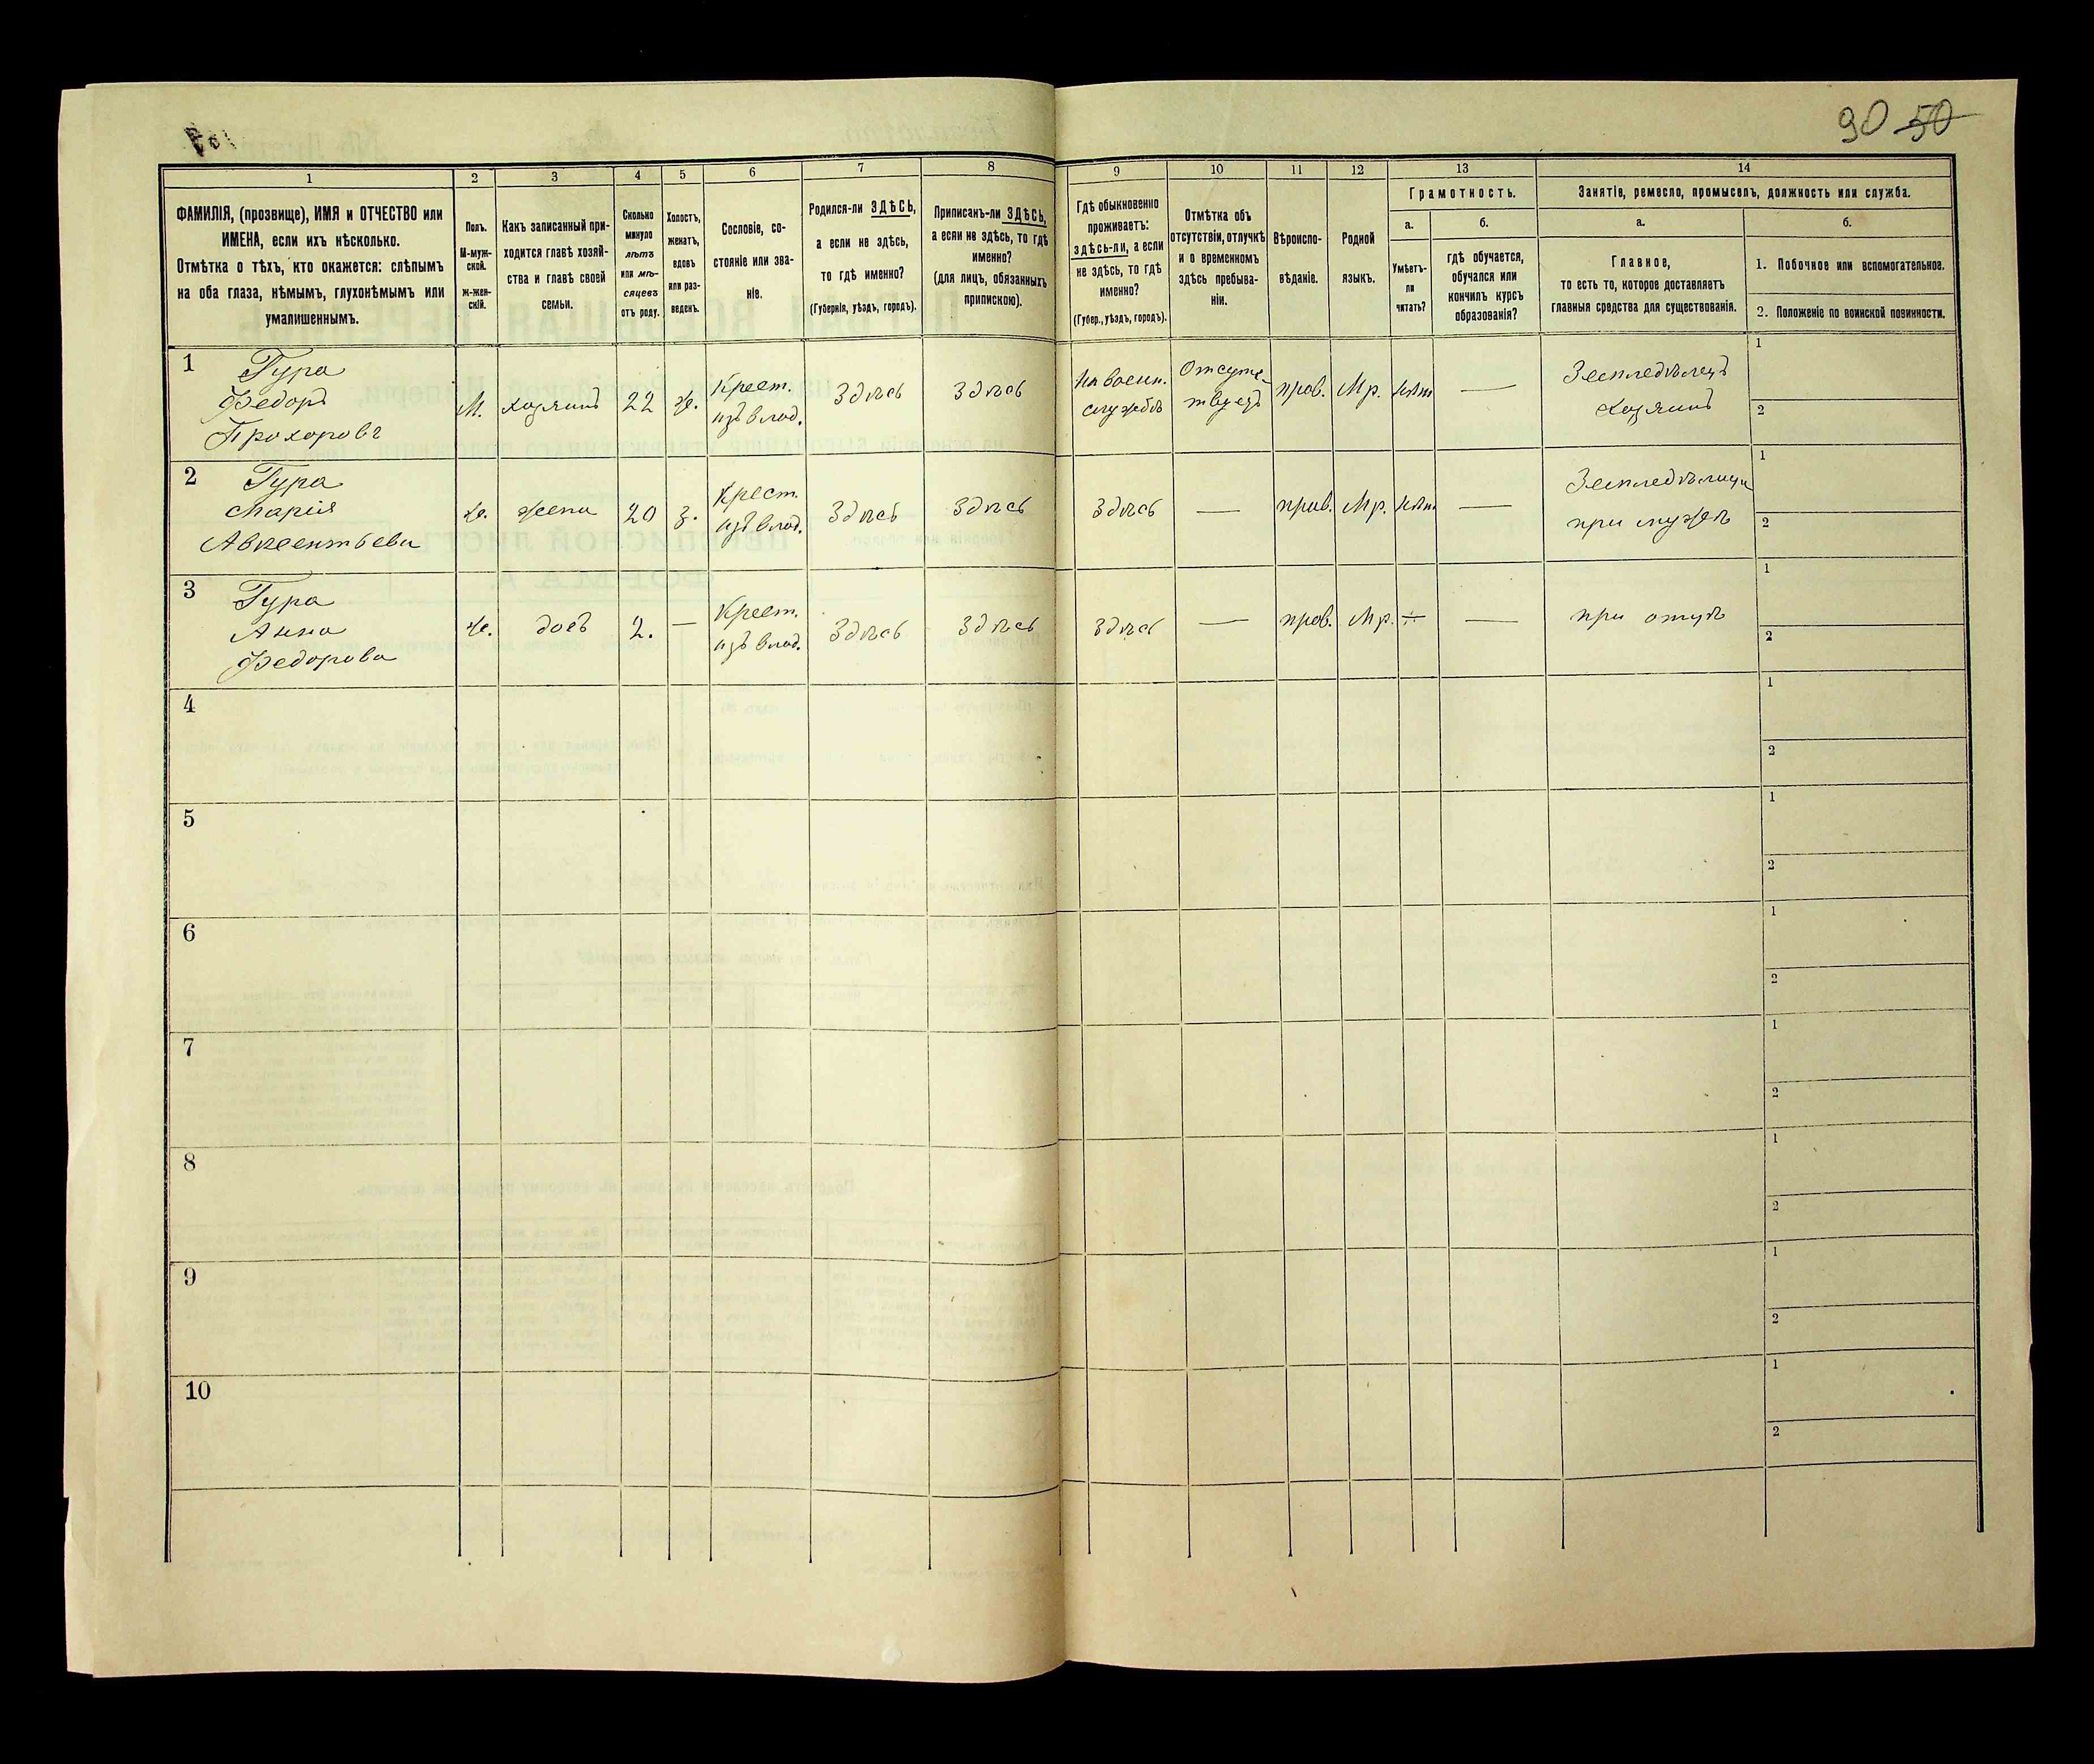 90 50
1
2
3
4
5
6
7
8
9
10
11
12
13
14
ФАМИЛІЯ, (прозвище), ИМЯ и ОТЧЕСТВО или
ИМЕНА, если ихъ нѣсколько.
Отмѣтка о тѣхъ, кто окажется: слѣпымъ
на оба глаза, нѣмымъ, глухонѣмымъ или
умалишеннымъ.
Полъ.
М-муж-
ской.
Ж-жен-
скій.
Какъ записанный при-
ходится главѣ хозяй-
ства и главѣ своей
семьи.
Сколько
минуло
лѣтъ
или мѣ-
сяцевъ
отъ роду.
Холостъ,
женатъ,
вдовъ
или раз-
веденъ.
Сословіе, со-
стояніе или зва-
ніе.
Родился-ли ЗДѢСЬ,
а если не здѣсь,
то гдѣ именно?
(Губернія, уѣздъ, городъ).
Приписанъ-ли ЗДѢСЬ,
а если не здѣсь, то гдѣ
именно?
(для лицъ, обязанныхъ
припискою).
Гдѣ обыкновенно
проживаетъ:
здѣсь-ли, а если
не здѣсь, то гдѣ
именно?
(Губер., уѣздъ, городъ).
Отмѣтка объ
отсутствіи, отлучкѣ
и о временномъ
здѣсь пребыва-
ніи.
Вѣроиспо-
вѣданіе.
Родной
языкъ.
Грамотность.
а.
Умѣетъ-
ли
читать?
б.
гдѣ обучается,
обучался или
кончилъ курсъ
образованія?
Занятіе, ремесло, промыселъ, должность или служба.
а.
Главное,
то есть то, которое доставляетъ
главныя средства для существованія.
б.
1. Побочное или вспомогательное.
2. Положеніе по воинской повинности.
1
Гура
Федоръ
Прохоровъ
М.
хозяинъ
22
ж.
Крест.
изъ влад.
Здѣсь
Здѣсь
На воен.
службѣ
Отсутс-
твуетъ
прав.
Мр.
нѣт
—
Земледѣлецъ
хозяинъ
1
2
2
Гура
Марія
Авксентьева
ж.
жена
20
з.
Крест.
изъ влад.
Здѣсь
Здѣсь
Здѣсь
—
прав.
Мр.
нѣт
—
Земледѣлица
при мужѣ
1
2
3
Гура
Анна
Федорова
ж.
дочь
2.
—
Крест.
изъ влад.
Здѣсь
Здѣсь
Здѣсь
—
прав.
Мр.
—
при отцѣ
1
2
4
1
2
5
1
2
6
1
2
7
1
2
8
1
2
9
1
2
10
1
2